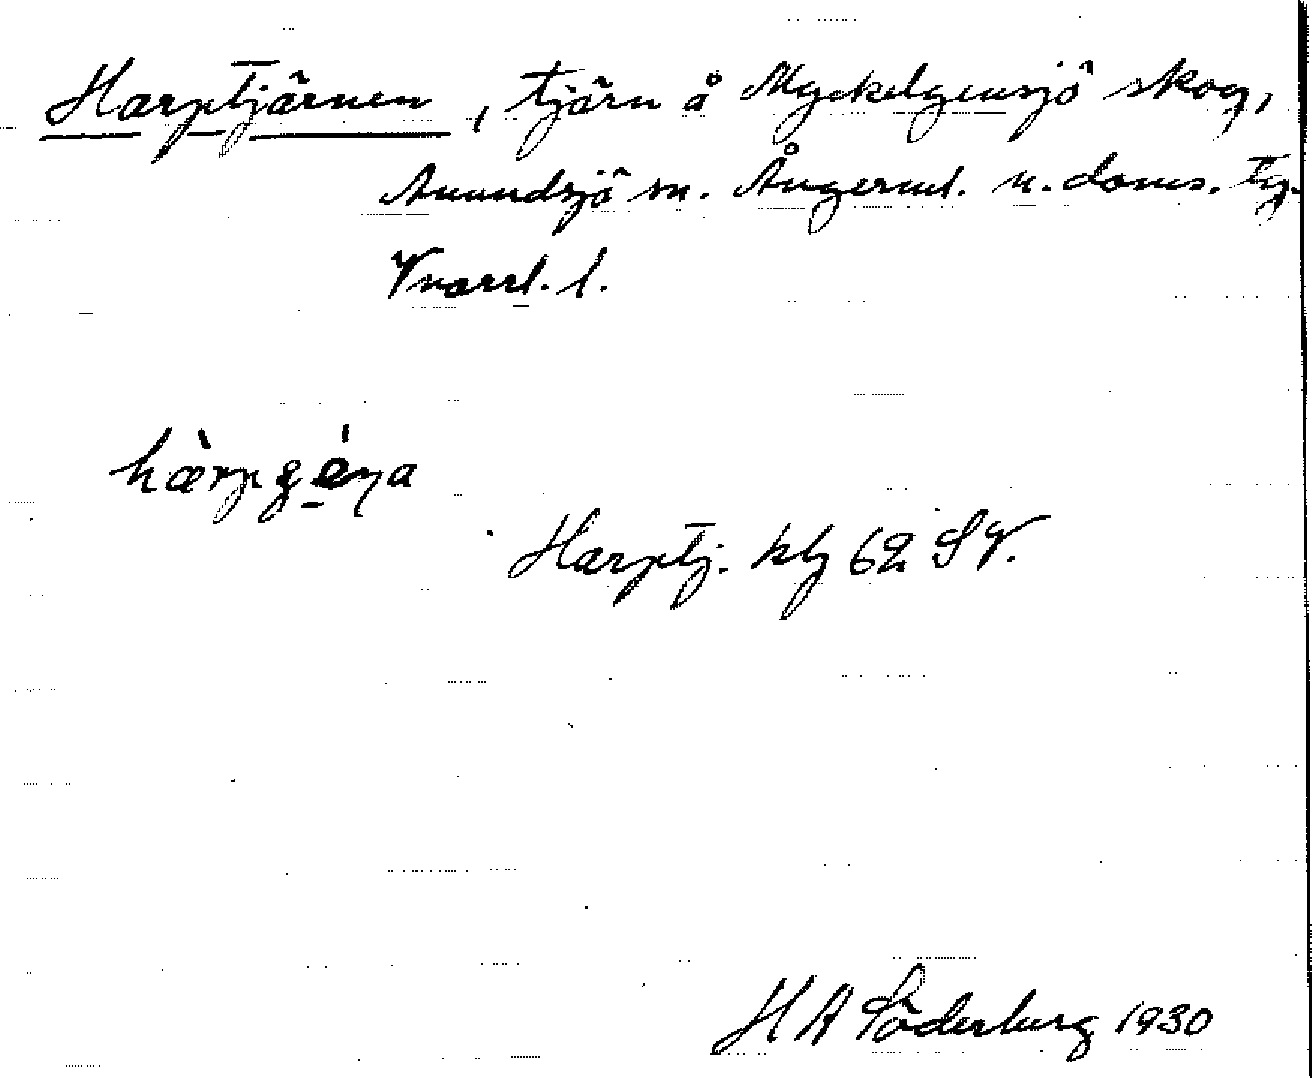 Harptjärnen, tjärn å Myckelgensjö skog,
Anundsjö sn. Ångerml. n. doms. tg.
Vnorrl. l.
Harptj. klg 62 SV.
H A Söderberg 1930